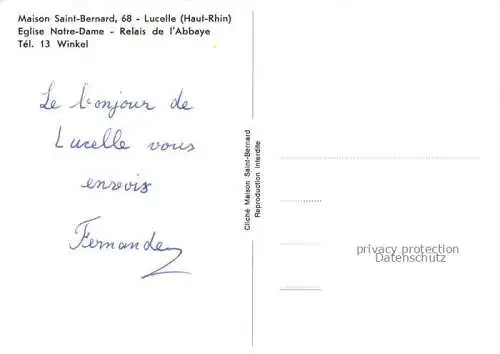 Maison Saint-Bernard, 68 - Lucelle (Haut-Rhin)
Eglise Notre-Dame - Relais de l'Abbaye
Tél. 13 Winkel
Le bonjour de
Lucelle vous
envois
Fernande
Cliché Maison Saint-Bernard
Reproduction Interdite
privacy protection
Datenschutz